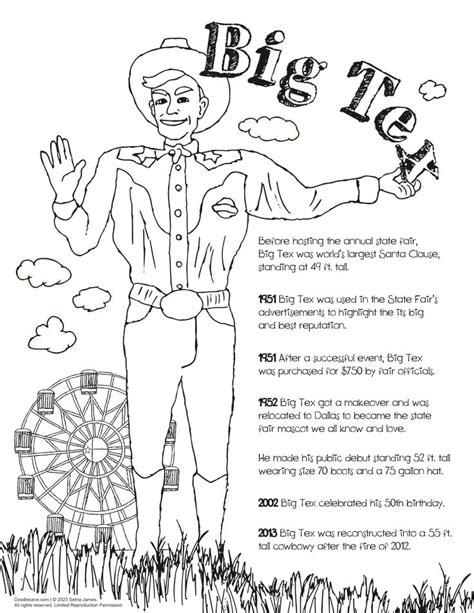 Big Tex
Before hosting the annual state fair,
Big Tex was world's largest Santa Clause,
standing at 49 ft. tall.
1951 Big Tex was used in the State Fair's
advertisements to highlight the its big
and best reputation.
1951 After a successful event, Big Tex
was purchased for $750 by fair officials.
1952 Big Tex got a makeover and was
relocated to Dallas to became the state
fair mascot we all know and love.
He made his public debut standing 52 ft. tall
wearing size 70 boots and a 75 gallon hat.
2002 Big Tex celebrated his 50th birthday.
2013 Big Tex was reconstructed into a 55 ft.
tall cowboy after the fire of 2012.
Doodlesave.com | © 2023 Selina James.
All rights reserved. Limited Reproduction Permission